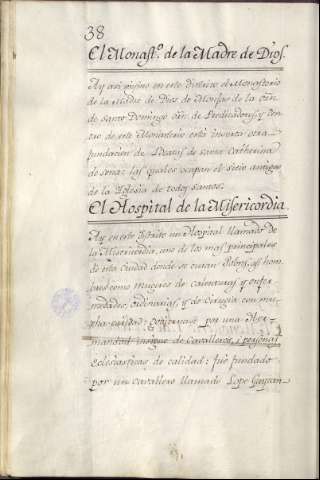 38
El Monast.º de la Madre de Dios.
Ay asi mismo en este distrito el Monasterio
de la Madre de Dios de Monjas de la orn.
de santo Domingo orn. de Predicadores, y den-
tro de este Monasterio esta inserta otra
fundacion de Beatas de santa Catherina
de sena: las quales ocupan el sitio antiguo
de la Iglesia de todos santos.
El Hospital de la Misericordia.
Ay en este distrito un Hospital llamado de
la Misericordia, uno de los mas principales
de esta Ciudad donde se curan Pobres, asi hom-
bres como mugeres de calenturas y enfer-
medades, ordinarias, y de Cirugia con mu-
cha caridad: governase por una Her-
mandad insigne de Cavalleros, i personas
eclesiasticas de calidad: fue fundado
por un cavallero llamado Lope Gaytan